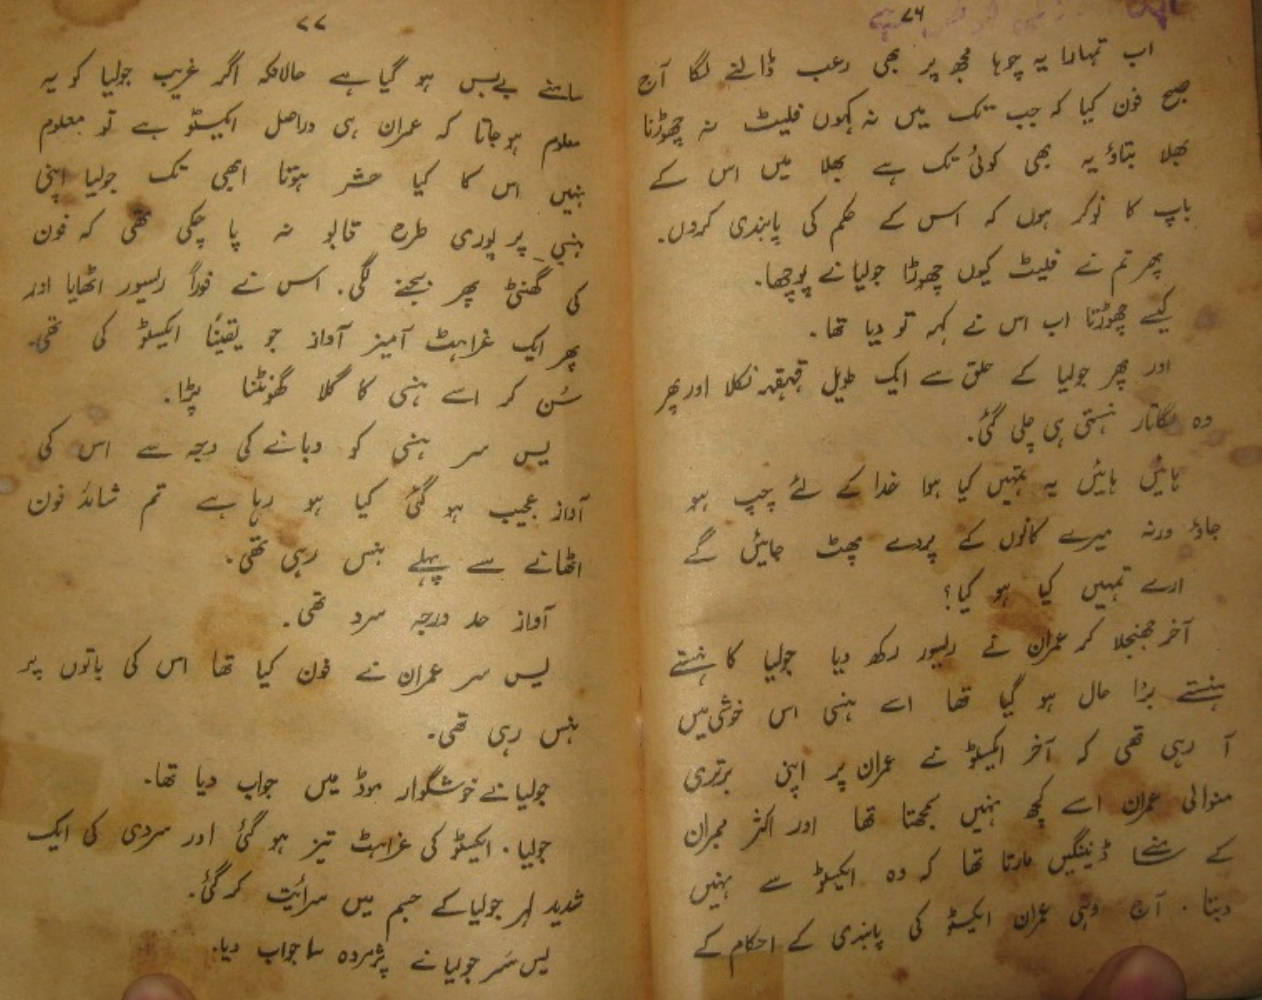 ۷۶
اب تمہارا یہ چوہا مجھ پر بھی رعب ڈالنے لگا آج
صبح فون کیا کہ جب تک میں نہ کہوں فلیٹ نہ چھوڑنا
بھلا بتاؤ یہ بھی کوئی تک ہے بھلا میں اس کے
باپ کا نوکر ہوں کہ اس کے حکم کی پابندی کروں۔
پھر تم نے فلیٹ کیوں چھوڑا جولیا نے پوچھا۔
کیسے چھوڑتا اب اس نے کہہ تو دیا تھا۔
اور پھر جولیا کے حلق سے ایک طویل قہقہہ نکلا اور پھر
وہ لگاتار ہنستی ہی چلی گئی۔
ہائیں ہائیں یہ تمہیں کیا ہوا خدا کے لئے چپ ہو
جاؤ ورنہ میرے کانوں کے پردے پھٹ جائیں گے
ارے تمہیں کیا ہو گیا؟
آخر جھنجلا کر عمران نے رسیور رکھ دیا جولیا کا ہنستے
ہنستے برا حال ہو گیا تھا اسے ہنسی اس خوشی میں
آ رہی تھی کہ آخر ایکسٹو نے عمران پر اپنی برتری
منوالی عمران اسے کچھ نہیں سمجھتا تھا اور اکثر ممبران
کے سامنے ڈینگیں مارتا تھا کہ وہ ایکسٹو سے نہیں
دبتا۔ آج وہی عمران ایکسٹو کی پابندی کے احکام کے
۷۷
سامنے بےبس ہو گیا ہے حالانکہ اگر غریب جولیا کو یہ
معلوم ہو جاتا کہ عمران ہی دراصل ایکسٹو ہے تو معلوم
نہیں اس کا کیا حشر ہوتا ابھی تک جولیا اپنی
ہنسی پر پوری طرح قابو نہ پا چکی تھی کہ فون
کی گھنٹی پھر بجنے لگی۔ اس نے فوراً رسیور اٹھایا اور
پھر ایک غراہٹ آمیز آواز جو یقیناً ایکسٹو کی تھی۔
سُن کر اسے ہنسی کا گلا گھونٹنا پڑا۔
یس سر ہنسی کو دبانے کی وجہ سے اس کی
آواز عجیب ہو گئی کیا ہو رہا ہے تم شائد فون
اٹھانے سے پہلے ہنس رہی تھی۔
آواز حد درجہ سرد تھی۔
یس سر عمران نے فون کیا تھا اس کی باتوں پر
ہنس رہی تھی۔
جولیا نے خوشگوار موڈ میں جواب دیا تھا۔
جولیا۔ ایکسٹو کی غراہٹ تیز ہو گئی اور سردی کی ایک
شدید لہر جولیا کے جسم میں سرائیت کر گئی۔
یس سَر جولیا نے پژمردہ سا جواب دیا۔